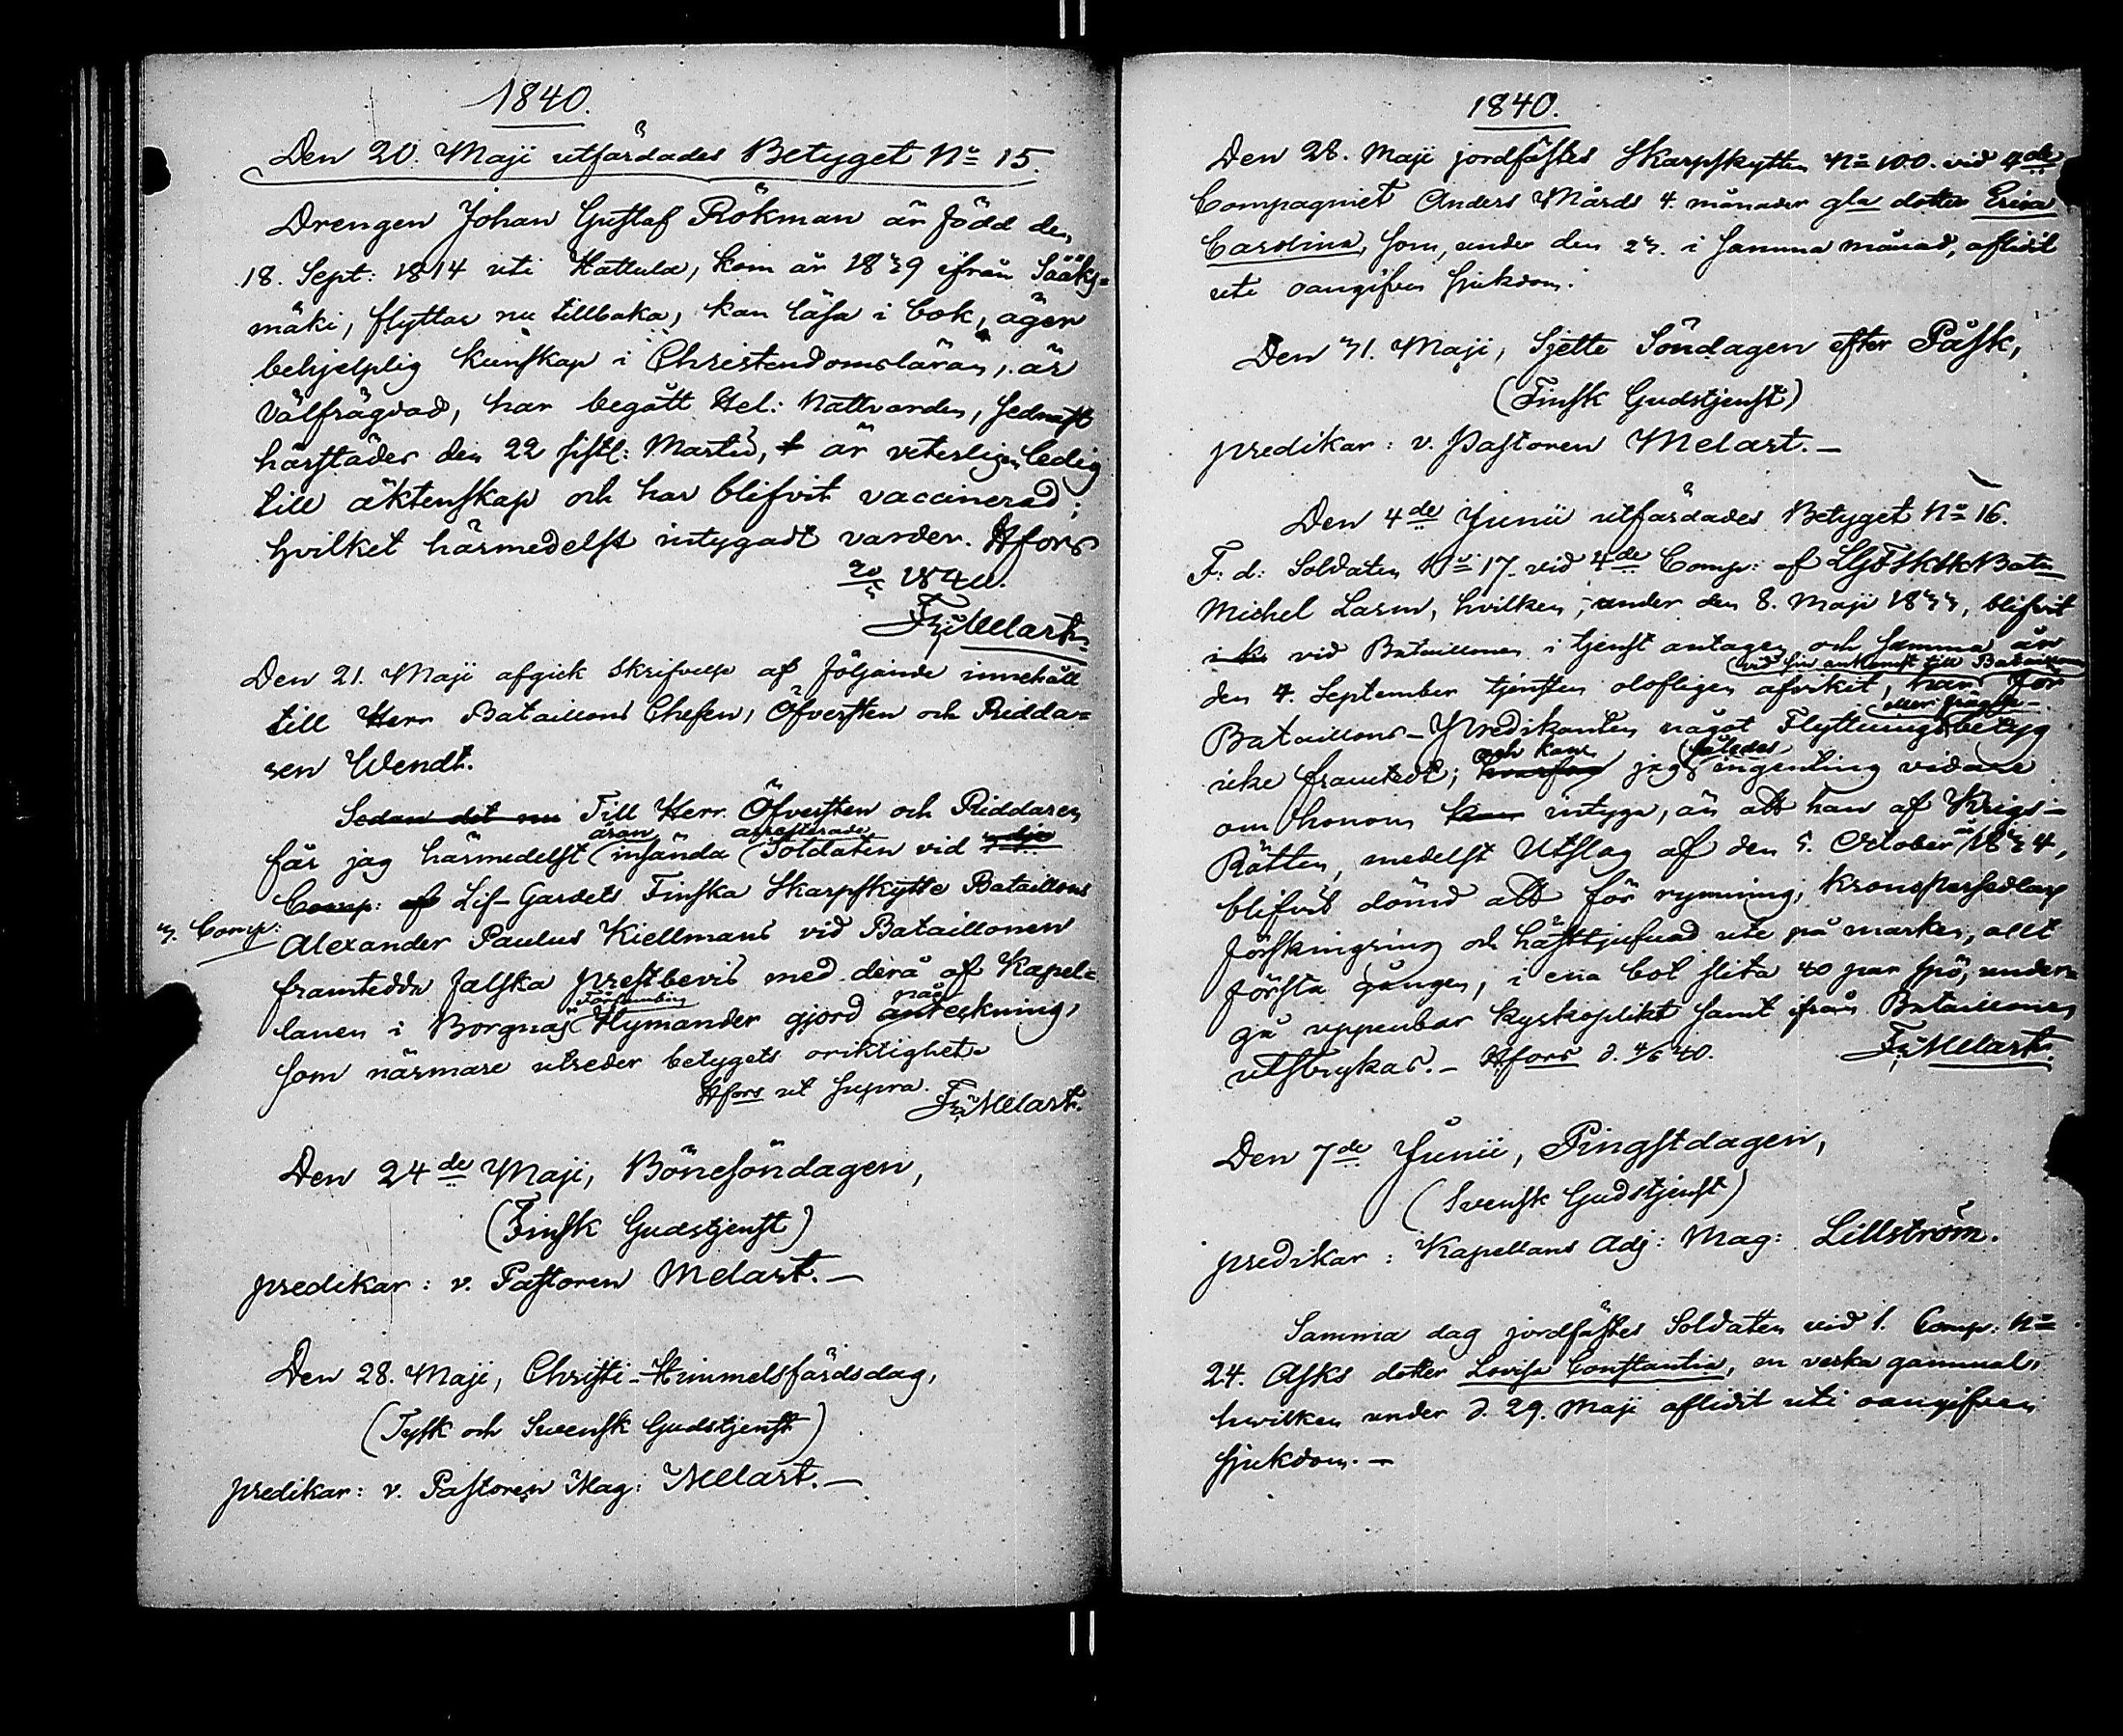 1840.
Den 20. Maji utfärdades Betyget No 15.
Drengen Johan Gustaf Rökman är född den
18. Sept: 1814 uti Hattula, kom år 1839 ifrån Sääks-
mäki, flyttar nu tillbaka, kan läsa i bok, äger
behjelplig kunskap i Christendomsläran, är
välfrägdad, har begått Hel: Nattvarden, sednast
härstädes den 22 sistl: Martii, är veterligen ledig
till äktenskap och har blifvit vaccinerad;
hvilket härmedelst intygadt varder. Hfors
20/5 1840.
Fr: Melart.
Den 21. Maji afgick Skrifvelse af följande innehåll
till Herr Bataillons Chefen, Öfversten och Ridda-
ren Wendt.
Sedan det nu Till Herr Öfversten och Riddaren
får jag härmedelst äran insända arresterade Soldaten vid
3. Comp: Comp: af Lif-Gardets Finska Skarpskytte Bataillons
Alexander Paulus Kiellmans vid Bataillonen
framtedda falska prestbevis med derå af Kapel-
lanen i Borgnäs Församling Hymander gjord påteckning,
som närmare utreder betygets oriktighet.
Hfors ut supra. Fr: Melart.
Den 24de Maji, Bönesöndagen,
(Finsk Gudstjenst)
predikar: v. Pastoren Melart. —
Den 28. Maji, Christi-Himmelsfärdsdag,
(Tysk och Svensk Gudstjenst)
predikar: v. Pastoren Mag: Melart. —
1840.
Den 28. Maji jordfästes Skarpskytten No 100. vid 4de
Compagniet Anders Mårds 4. månader gla dotter Erica
Carolina, som, under den 23. i samma månad, aflidit
uti oangifven sjukdom.
Den 31. Maji, Sjette Söndagen efter Påsk,
(Finsk Gudstjenst)
predikar: v. Pastoren Melart. —
Den 4de Junii utfärdades Betyget No 16.
F: d: Soldaten No 17. vid 4de Comp: af LGdFSkSkBatn
Michel Larm, hvilken, under den 8. Maji 1833, blifvit
vid Bataillonen i tjenst antagen och samma år
den 4. September tjensten olofligen afvikit, har vid sin ankomst till Bataillonen för
Bataillons-Predikanten något Flyttnings- eller frägde-betyg
icke framtedt; och kan jag således ingenting vidare
om honom intyga, än att han af Krigs-
Rätten, medelst Utslag af den 5. October år 1834,
blifvit dömd att för rymning, Kronopersedlars
förskingring och hästtjufnad ute på marken, allt
första gången, i ena bot slita 40 par spö, under-
gå uppenbar kyrkoplikt samt ifrån Bataillonen
utstrykas. — Hfors d. 4/6 40. Fr: Melart.
Den 7de Junii, Pingstdagen,
(Svensk Gudstjenst)
predikar: Kapellans Adj: Mag: Lillström.
Samma dag jordfästes Soldaten vid 1. Comp: No
24. Asks dotter Lovisa Constantia, en vecka gammal,
hwilken under d. 29. Maji aflidit uti oangifven
sjukdom. —